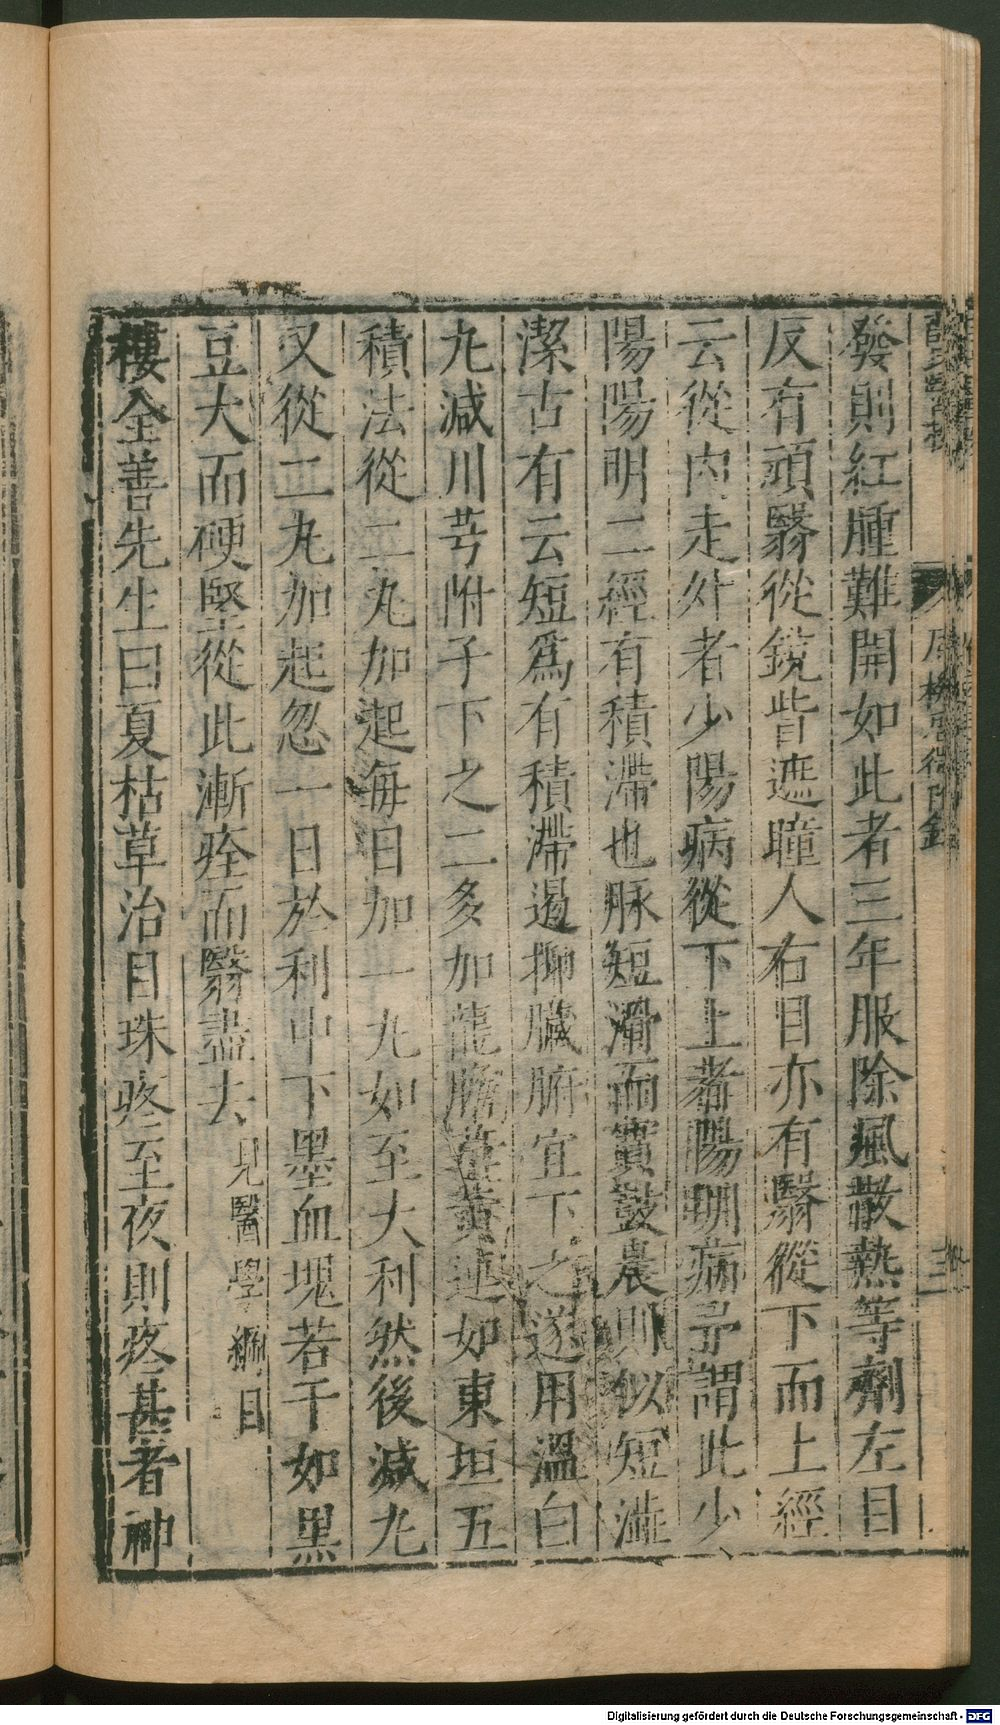 發則紅腫難開如此者三年服除風散熱等劑左目
反有頭翳從鋭眥遮瞳人右目亦有翳從下而上經
云從内走外者少陽病從下上者陽明病予謂此少
陽陽明二經有積滯也脉短滑而實鼓晨則似短濇
潔古有云短爲有積滯遏抑臓腑宜下之遂用溫白
丸減川芎附子下之二多加龍膽草黄連如東垣五
積法從二丸加起每日加一丸如至大利然後減丸
又從二丸加起忽一日於利中下墨血塊若干如黒
豆大而硬堅從此漸痊而翳盡去見醫學綱目
樓全善先生曰夏枯草治目珠疼至夜則疼甚者神
三
Digitalisierung gefördert durch die Deutsche Forschungsgemeinschaft - DFG